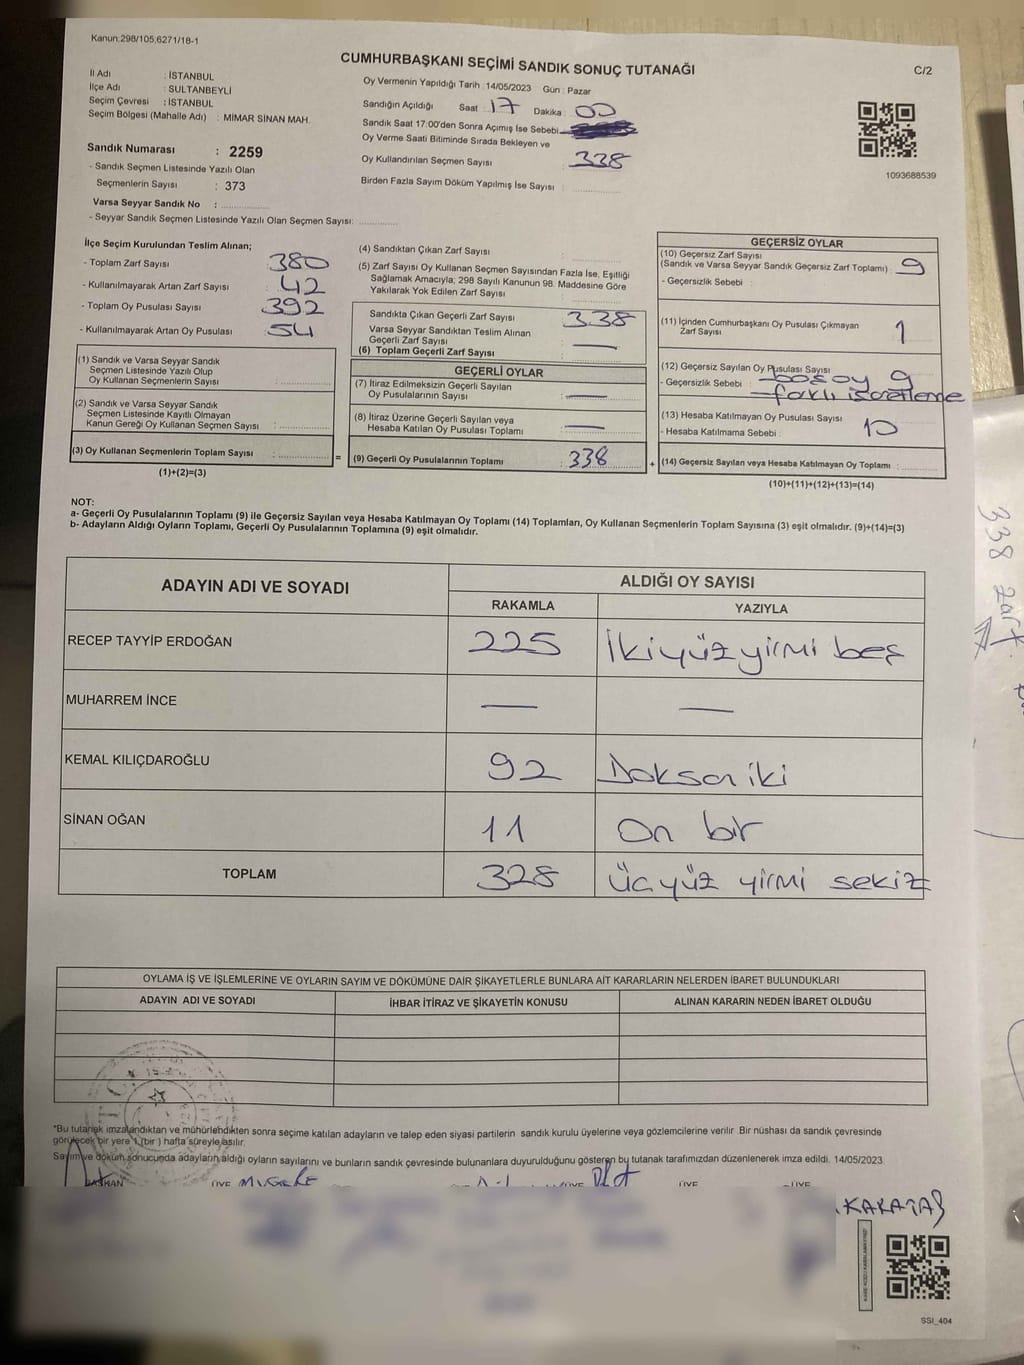 Kanun:298/105,6271/18-1
CUMHURBAŞKANI SEÇİMİ SANDIK SONUÇ TUTANAĞI
C/2
İl Adı : İSTANBUL
İlçe Adı : SULTANBEYLİ
Seçim Çevresi : İSTANBUL
Seçim Bölgesi (Mahalle Adı) : MİMAR SİNAN MAH.
Sandık Numarası : 2259
- Sandık Seçmen Listesinde Yazılı Olan
Seçmenlerin Sayısı : 373
Varsa Seyyar Sandık No :
- Seyyar Sandık Seçmen Listesinde Yazılı Olan Seçmen Sayısı:
Oy Vermenin Yapıldığı Tarih :14/05/2023 Gün : Pazar
Sandığın Açıldığı Saat : 17 Dakika : 00
Sandık Saat 17:00'den Sonra Açımış İse Sebebi
Oy Verme Saati Bitiminde Sırada Bekleyen ve
Oy Kullandırılan Seçmen Sayısı : 338
Birden Fazla Sayım Döküm Yapılmış İse Sayısı :
1093688539
İlçe Seçim Kurulundan Teslim Alınan;
- Toplam Zarf Sayısı : 380
- Kullanılmayarak Artan Zarf Sayısı : 42
- Toplam Oy Pusulası Sayısı : 392
- Kullanılmayarak Artan Oy Pusulası : 54
(1) Sandık ve Varsa Seyyar Sandık
Seçmen Listesinde Yazılı Olup
Oy Kullanan Seçmenlerin Sayısı :
(2) Sandık ve Varsa Seyyar Sandık
Seçmen Listesinde Kayıtlı Olmayan
Kanun Gereği Oy Kullanan Seçmen Sayısı :
(3) Oy Kullanan Seçmenlerin Toplam Sayısı : =
(1)+(2)=(3)
(4) Sandıktan Çıkan Zarf Sayısı :
(5) Zarf Sayısı Oy Kullanan Seçmen Sayısından Fazla İse, Eşitliği
Sağlamak Amacıyla; 298 Sayılı Kanunun 98. Maddesine Göre
Yakılarak Yok Edilen Zarf Sayısı :
Sandıkta Çıkan Geçerli Zarf Sayısı : 338
Varsa Seyyar Sandıktan Teslim Alınan
Geçerli Zarf Sayısı : —
(6) Toplam Geçerli Zarf Sayısı :
GEÇERLİ OYLAR
(7) İtiraz Edilmeksizin Geçerli Sayılan
Oy Pusulalarının Sayısı : —
(8) İtiraz Üzerine Geçerli Sayılan veya
Hesaba Katılan Oy Pusulası Toplamı : —
(9) Geçerli Oy Pusulalarının Toplamı : 338 +
GEÇERSİZ OYLAR
(10) Geçersiz Zarf Sayısı
(Sandık ve Varsa Seyyar Sandık Geçersiz Zarf Toplamı) : 9
- Geçersizlik Sebebi :
(11) İçinden Cumhurbaşkanı Oy Pusulası Çıkmayan
Zarf Sayısı : 1
(12) Geçersiz Sayılan Oy Pusulası Sayısı : 9
- Geçersizlik Sebebi : – boş oy
– farklı işaretleme
(13) Hesaba Katılmayan Oy Pusulası Sayısı : 10
- Hesaba Katılmama Sebebi :
(14) Geçersiz Sayılan veya Hesaba Katılmayan Oy Toplamı :
(10)+(11)+(12)+(13)=(14)
NOT:
a- Geçerli Oy Pusulalarının Toplamı (9) ile Geçersiz Sayılan veya Hesaba Katılmayan Oy Toplamı (14) Toplamları, Oy Kullanan Seçmenlerin Toplam Sayısına (3) eşit olmalıdır. (9)+(14)=(3)
b- Adayların Aldığı Oyların Toplamı, Geçerli Oy Pusulalarının Toplamına (9) eşit olmalıdır.
338 zarf
ADAYIN ADI VE SOYADI ALDIĞI OY SAYISI
RAKAMLA YAZIYLA
RECEP TAYYİP ERDOĞAN 225 İkiyüzyirmi beş
MUHARREM İNCE — —
KEMAL KILIÇDAROĞLU 92 Doksan iki
SİNAN OĞAN 11 On bir
TOPLAM 328 Üçyüz yirmi sekiz
OYLAMA İŞ VE İŞLEMLERİNE VE OYLARIN SAYIM VE DÖKÜMÜNE DAİR ŞİKAYETLERLE BUNLARA AİT KARARLARIN NELERDEN İBARET BULUNDUKLARI
ADAYIN ADI VE SOYADI İHBAR İTİRAZ VE ŞİKAYETİN KONUSU ALINAN KARARIN NEDEN İBARET OLDUĞU
*Bu tutanak imzalandıktan ve mühürlendikten sonra seçime katılan adayların ve talep eden siyasi partilerin sandık kurulu üyelerine veya gözlemcilerine verilir .Bir nüshası da sandık çevresinde
görülecek bir yere 1 (bir ) hafta süreyle asılır.
Sayım ve döküm sonucunda adayların aldığı oyların sayılarını ve bunların sandık çevresinde bulunanlara duyurulduğunu gösteren bu tutanak tarafımızdan düzenlenerek imza edildi. 14/05/2023
BAŞKAN ÜYE ÜYE ÜYE ÜYE
KARATAŞ
SSI_404